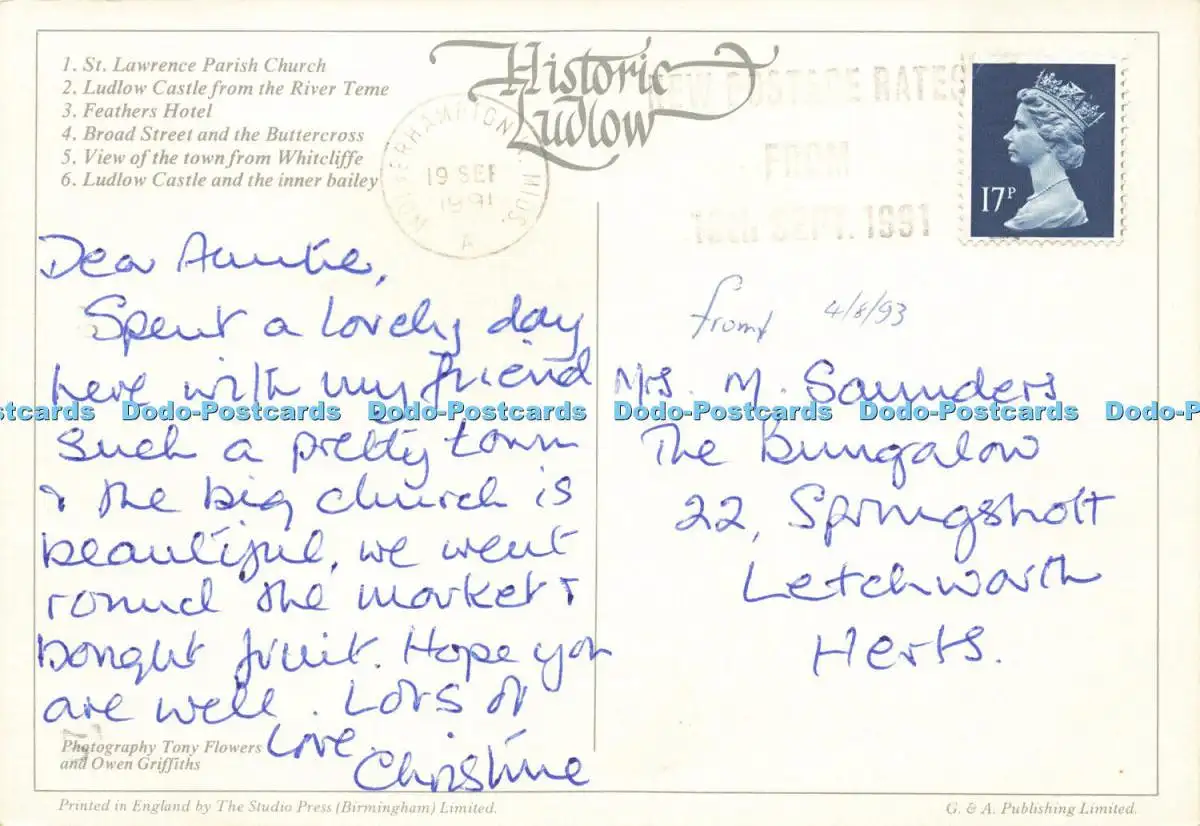 1. St. Lawrence Parish Church
2. Ludlow Castle from the River Teme
3. Feathers Hotel
4. Broad Street and the Buttercross
5. View of the town from Whitcliffe
6. Ludlow Castle and the inner bailey
Historic
Ludlow
WOLVERHAMPTON W. MIDS.
19 SEP
1991
A
NEW POSTAGE RATES
FROM
16th SEPT. 1991
17P
Dear Auntie,
Spent a lovely day
here with my friend
such a pretty town
& the big church is
beautiful, we went
round the market &
bought fruit. Hope you
are well. Lots of
Love.
Christine
4/8/93
Mrs. M. Saunders
The Bungalow
22, Springshott
Letchworth
Herts.
Dodo-Postcards Dodo-Postcards Dodo-Postcards Dodo-Postcards
Photography Tony Flowers
and Owen Griffiths
Printed in England by The Studio Press (Birmingham) Limited.
G. & A. Publishing Limited.